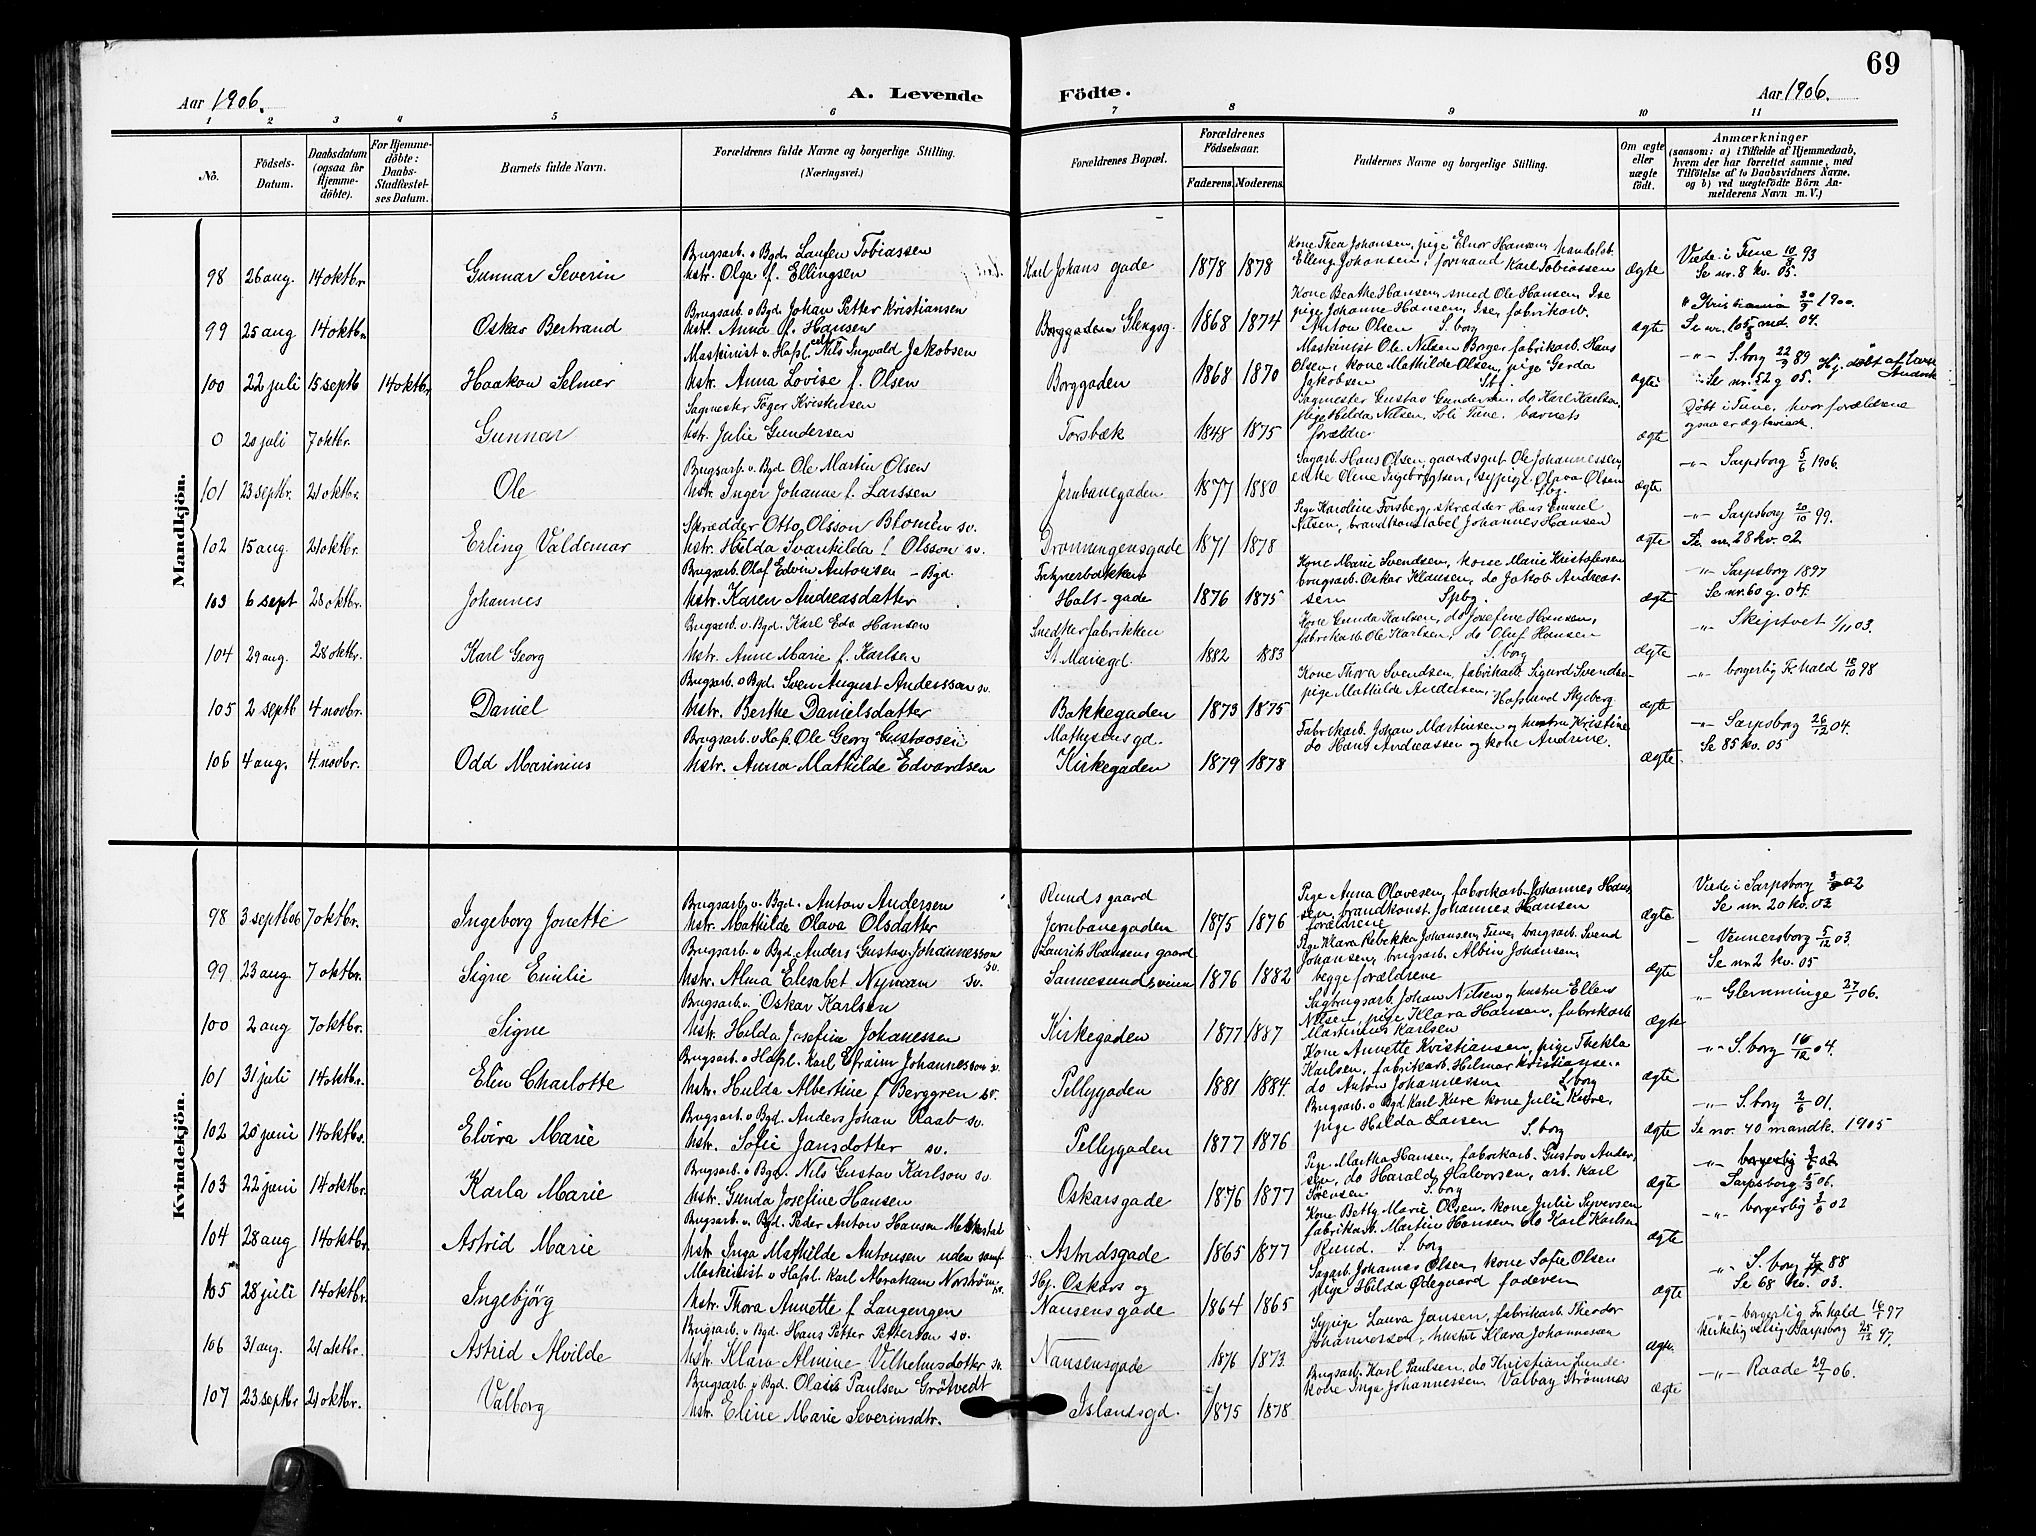 69
Aar 1906.
A. Levende
Födte.
Aar 1906.
1 2 3 4 5 6 7 8 9 10 11
No.
Födsels-Datum.
Daabsdatum (ogsaa for Hjemme-döbte).
For Hjemme-döbte: Daabs-Stadfæstel-ses Datum.
Barnets fulde Navn.
Forældrenes fulde Navne og borgerlige Stilling.
(Næringsvei.)
Forældrenes Bopæl.
Forældrenes Födselsaar.
Faderens. Moderens.
Faddernes Navne og borgerlige Stilling.
Om ægte eller uægte födt.
Anmærkninger
(saasom: a) i Tilfælde af Hjemmedaab,
hvem der har forrettet samme, med
Tilföielse af to Daabsvidners Navne,
og b) ved uægtefödte Börn An-
melderens Navn m. V.)
Mandkjön.
Brugsarb. v Bgd. Laufen Tobiassen
98 26 aug. 14 oktbr. Gunnar Severin Hstr. Olga f. Ellingsen Karl Johans gade 1878 1878
Kone Thea Johansen, pige Elnor Hansen, handelsb.
Elling Johansen, formand Karl Tobiassen ægte
Viede i Tune 10/9 93
Se nr. 8 kv. 05.
Brugsarb. v Bgd. Johan Petter Kristiansen
99 25 aug 14 oktbr Oskar Bertrand Hstr. Anna f. Hansen Borggaden Glengsg. 1868 1874
Kone Beathe Hansen, smed Ole Hansen, Ise
pige Johanne Hansen, Ise, fabrikarb.
Anton Olsen S.borg ægte
" Kristiania 30/9 1900.
Se nr. 105 md. 04.
Maskinist v. Hafsl. Nils Ingvald Jakobsen
100 22 juli 15 septb 14 oktbr Haakon Selmer Hstr. Anna Lovise f. Olsen Borggaden 1868 1870
Maskinist Ole Nilsen Borge, fabrikarb. Hans
Olsen, kone Mathilde Olsen, pige Gerda
Jakobsen Sbg. ægte
-"- S.borg 22/9 89
Se nr. 52 g 05.
Sagmester Töger Kristensen
0 20 juli 7 oktbr. Gunnar Hstr. Julie Gundersen Torsbæk 1848 1875
Sagmester Gustav Gundersen, do Karl Karlsen,
pige Hilda Nilsen, Soli Tune, barnets
forældre ægte
Döbt i Tune, hvor forældrene
ogsaa er ægteviede.
Brugsarb. v. Bgd Ole Martin Olsen
101 23 septbr. 21 oktbr Ole Hstr. Inger Johanne f. Larssen Jernbanegaden 1877 1880
Sagarb. Hans Olsen, gaardsgut Ole Johannessen,
enke Oline Ingebrigtsen, sypige Olava Olsen
Sbg. ægte
-"- Sarpsborg 5/6 1906.
Skrædder Otto Olsson Blomén sv.
102 15 aug. 21 oktbr. Erling Valdemar Hstr. Hilda Svanhilda f Olsson sv. Dronningensgade 1871 1878
Pige Karoline Forsberg, skrædder Hans Emmel
Nilsen, brandkonstabel Johannes Hansen
ægte
-"- Sarpsborg 20/10 99.
Se nr. 28 kv. 02.
Brugsarb. Olaf Edvin Antonsen - Bgd.
103 6 sept 28 oktbr. Johannes Hstr. Karen Andreasdatter Fritznerbakken
Hals-gade 1876 1875
Kone Marie Svendsen, kone Marie Kristofersen
brugsarb. Oskar Klausen, do Jakob Andreas-
sen Spbg. ægte
-"- Sarpsborg 1897
Se nr. 60 g. 04.
Brugsarb. v. Bgd. Karl Edv Hansen
104 29 aug. 28 oktbr. Karl Georg Hstr. Anne Marie f. Karlsen Snedkerfabrikken
St. Mariegd. 1882 1883
Kone Gunda Karlsen, do Josefine Hansen,
fabrikarb. Ole Karlsen, do Oluf Hansen
S.borg ægte
-"- Skiptvet 1/11 03.
Brugsarb. v Bgd. Sven August Andersson sv.
105 2 septb 4 novbr. Daniel Hstr. Berthe Danielsdatter Bakkegaden 1873 1875
Kone Thora Svendsen, fabrikarb. Sigurd Svendsen
pige Mathilde Andersen, Hafslund Skjeberg
ægte
-"- borgerlig Fr.hald 18/10 98
Brugsarb. v Hafs. Ole Georg Gustavsen
106 4 aug. 4. novbr. Odd Marinius Hstr. Anna Mathilde Edvardsen Mathesensgd.
Kirkegaden 1879 1878
Fabrikarb. Johan Martinsen og hustru Kristine
do Hans Andreassen og kone Andrine.
ægte.
-"- Sarpsborg 26/12 04.
Se 85 kv. 05
Kvindekjön.
Brugsarb. v. Bgd. Anton Andersen
98 3 septb 06 7 oktbr. Ingeborg Jonette Hstr. Mathilde Olava Olsdatter Runds gaard
Jernbanegaden 1875 1876
Pige Anna Olavesen, fabrikarb. Johannes Han-
sen, brandkonst. Johannes Hansen
forældrene ægte
Viede i Sarpsborg 3/9 02
Se nr. 20 kv. 03
Brugsarb. v Bgd. Anders Gustav Johannesson sv.
99 23 aug. 7 oktbr. Signe Emilie Hstr. Alma Elisabet Nyman sv. Laurits Hansens gaard
Sannesundsveien 1876 1882
Pige Klara Rebekka Johansen, Tune, brugsarb. Svend
Johansen, brugsarb. Albin Johansen,
begge forældrene ægte
- Vennersborg 5/12 03.
Se nr. 2 kv. 05
Brugsarb. v. Oskar Karlsen
100 2 aug 7 oktbr. Signe Hstr. Hilda Josefine Johanessen Kirkegaden 1877 1887
Sagbrugsarb. Johan Nilsen og hustru Ellen
Nilsen, pige Klara Hansen, fabrikarb
Martinius Karlsen ægte
" Glemminge 27/1 06.
Brugsarb. v Hafsl. Karl Efraim Johannesson sv.
101 31 juli 14 oktbr. Elin Charlotte Hstr. Hulda Albertine f Berggren sv. Pellygaden 1881 1884.
Kone Annette Kristiansen, pige Thekla
Karlsen, fabrikarb. Hilmar Kristiansen,
do Anton Johannessen S.borg ægte
-"- S.borg 16/12 04.
Brugsarb. v Bgd. Anders Johan Raab sv.
102 20 juni 14 oktbr. Elvira Marie Hstr. Sofie Jansdotter sv. Pellygaden 1877 1876
Brugsarb. v Bgd Karl Kure kone Julie Kure,
pige Hilda Larsen S.borg ægte
-"- S.borg 2/6 01.
Se no. 40 mandk. 1905
Brugsarb. v Bgd. Nils Gustav Karlson sv.
103 22 juni 14 oktbr. Karla Marie Hstr. Gunda Josefine Hansen Oskarsgade 1876 1877
Pige Martha Hansen, fabrikarb. Gustav Ander-
sen, do Harald Halvorsen, arb. Karl
Sörensen S.borg ægte
Sarpsborg 5/3 06.
Brugsarb. v. Bgd. Peder Anton Hansen
104 28 aug 14 oktbr. Astrid Marie Hstr. Inga Mathilde Antonsen uden samf Astridsgade 1865 1877
Kone Betty Marie Olsen, kone Julie Syversen
fabrikarb. Martin Hansen, do Karl Karlsen
Rund. S.borg ægte
-"- borgerlig 3/6 02
Maskinist v Hafsl. Karl Abraham Norström sv.
105 28 juli 14 oktbr. Ingebjörg Hstr. Thora Annette f Langengen Hj. Oskars og
Nansensgade 1864 1865
Sagarb. Johannes Olsen, kone Sofie Olsen
pige Hilda Ödegaard faderen ægte
-"- S.borg 88
Se 68 kv. 03.
Brugsarb. v. Bgd. Hans Petter Petterson sv.
106 31 aug. 21 oktbr. Astrid Alvilde Hstr. Klara Almine Vilhelmsdotter sv. Nansensgade 1876 1873.
Sypige Laura Jansen, fabrikarb. Theodor
Johannessen, hustru Klara Johannessen ægte.
-"- borgerlig Fr.hald 16/1 97
kirkelig velsig. Sarpsborg 25/12 97.
Brugsarb. v Bgd. Olaus Paulsen Grötvedt
107 23 septbr 21 oktbr. Valborg Hstr. Eline Marie Severinsdtr. Islandsgd. 1875 1878
Brugsarb. Karl Paulsen, do Kristian Lunde
kone Inga Johannessen, Valbay Strömnæs ægte
-"- Raade 29/1 06.